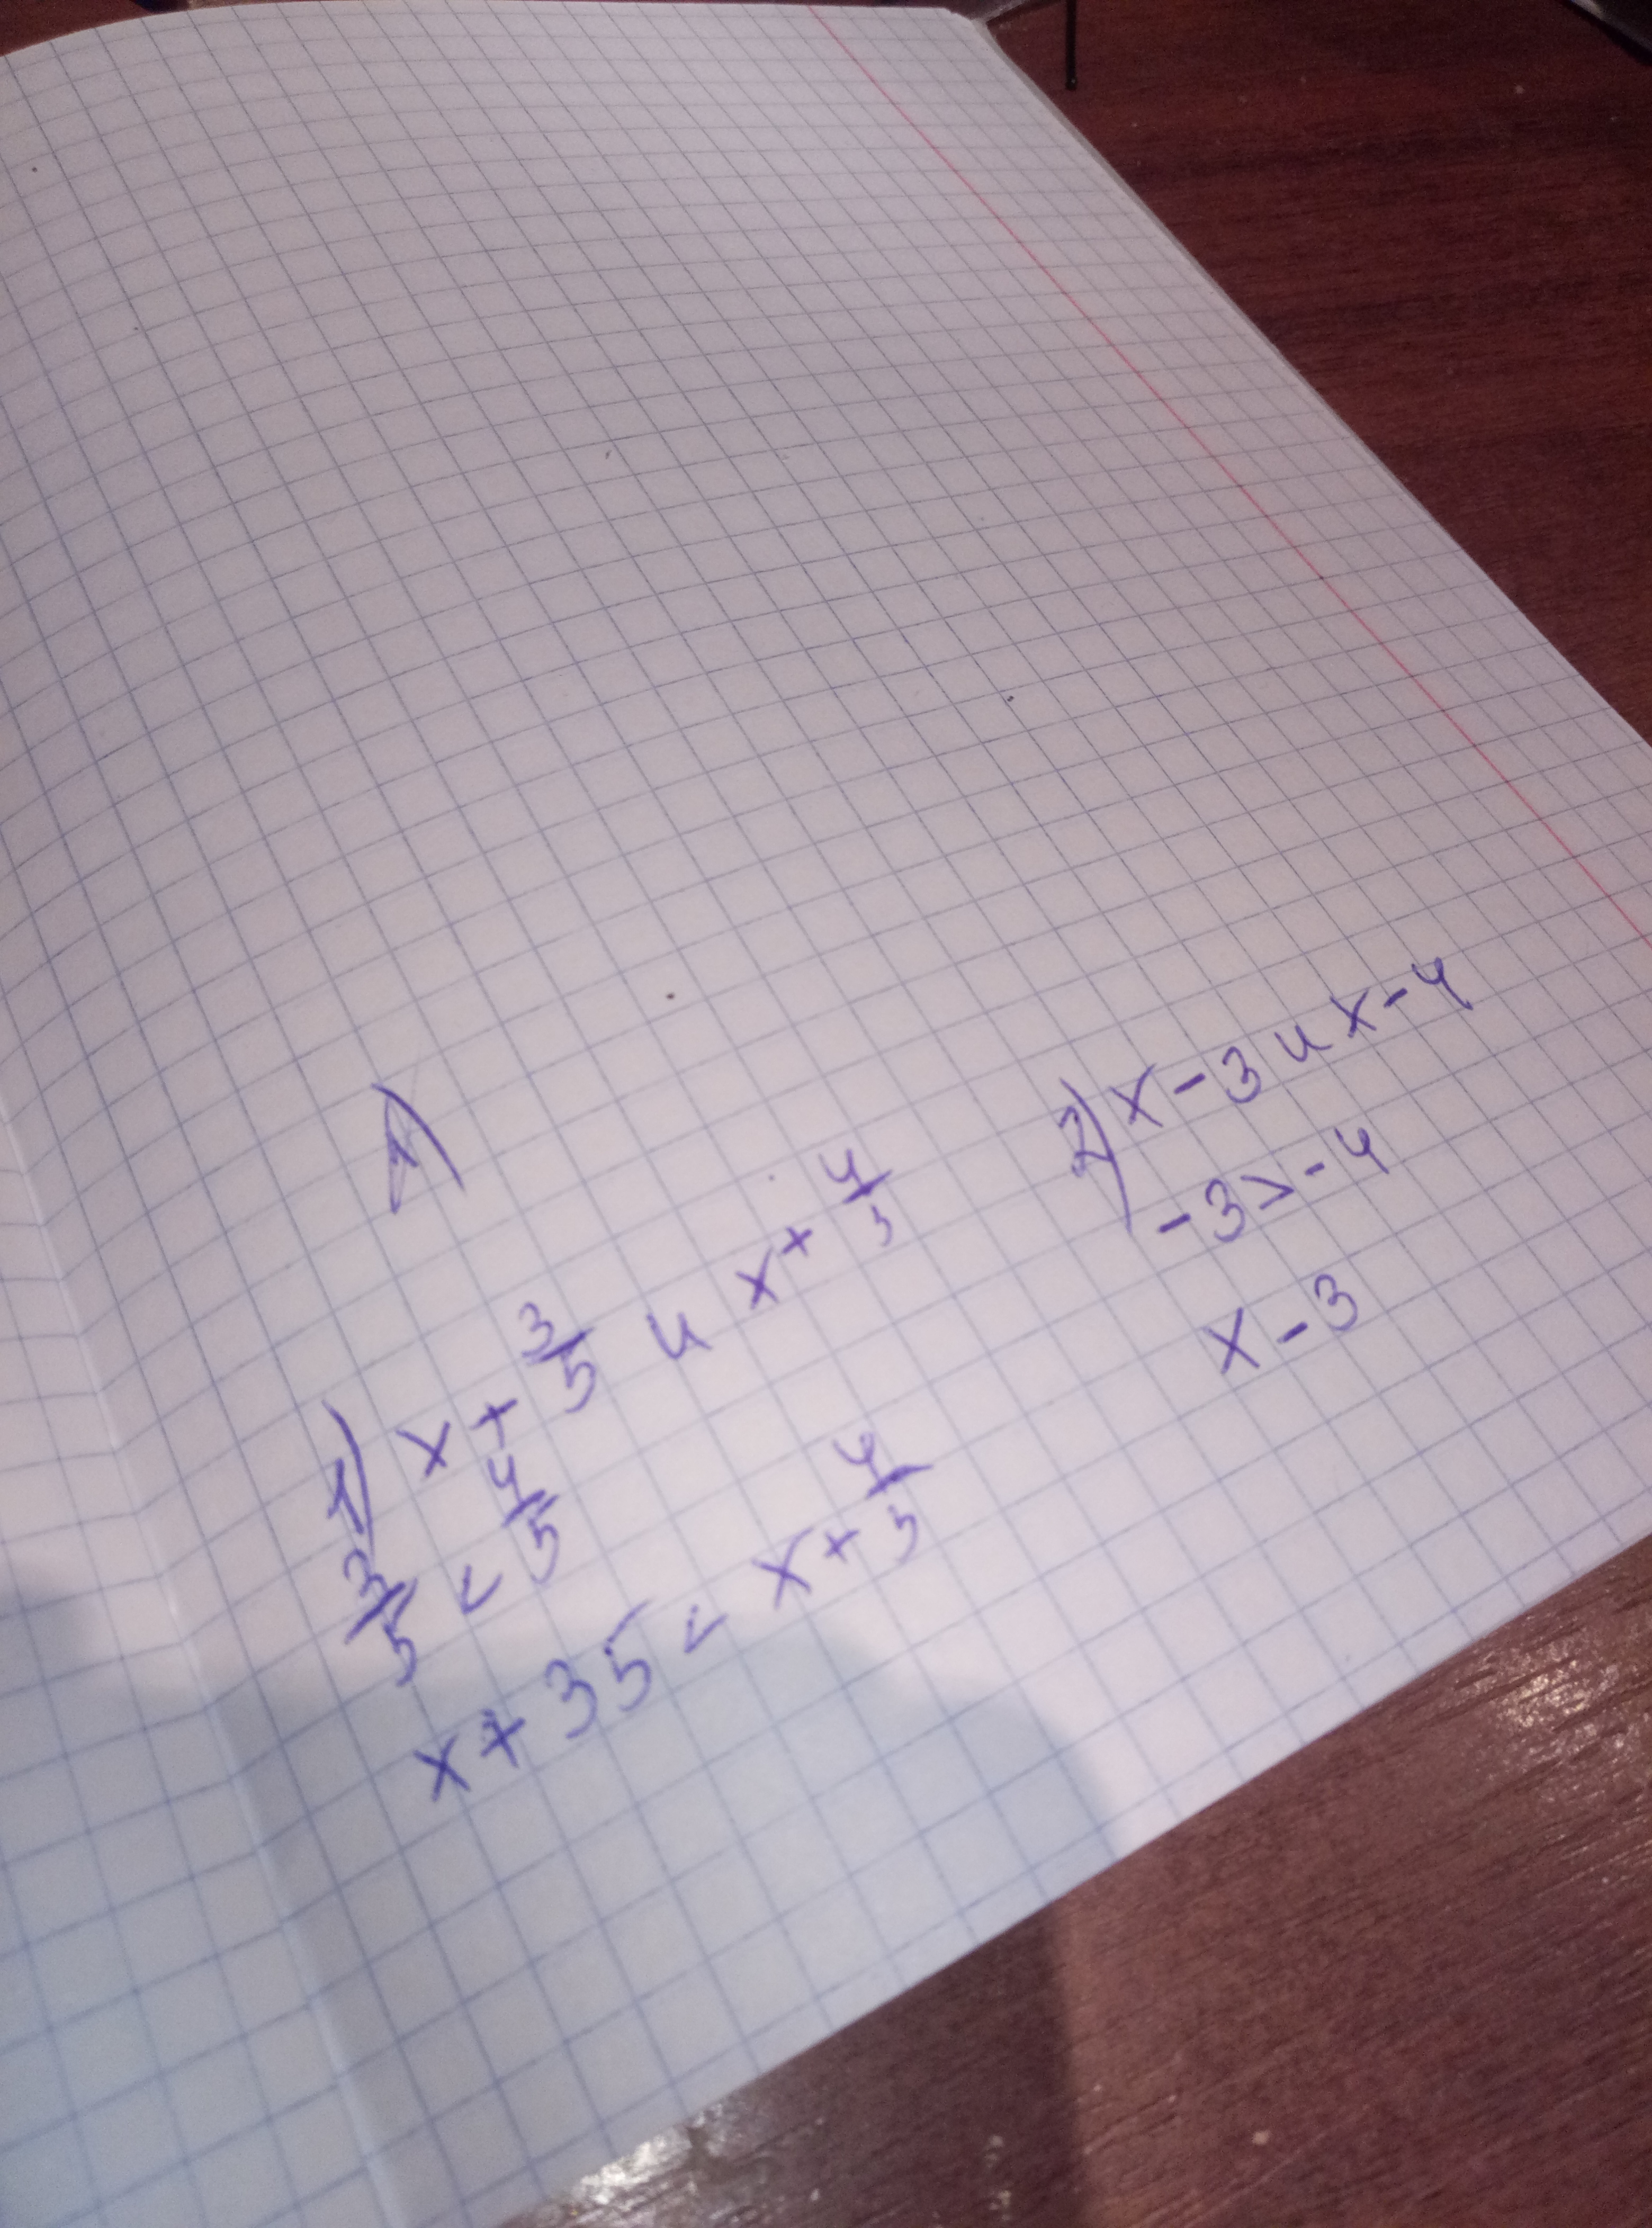 1)
1) x + 3/5 и x + 4/5
3/5 < 4/5
x + 35 < x + 4/5
2) x - 3 и x - 4
- 3 > - 4
x - 3